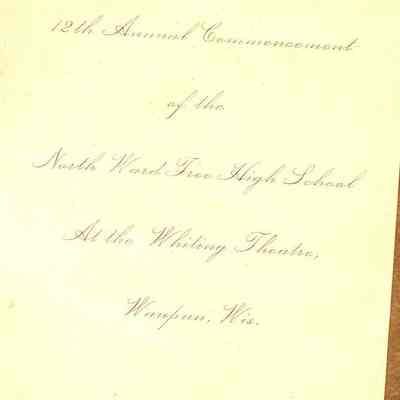 12th Annual Commencement
of the
North Ward Free High School
At the Whiting Theatre,
Waupun, Wis.